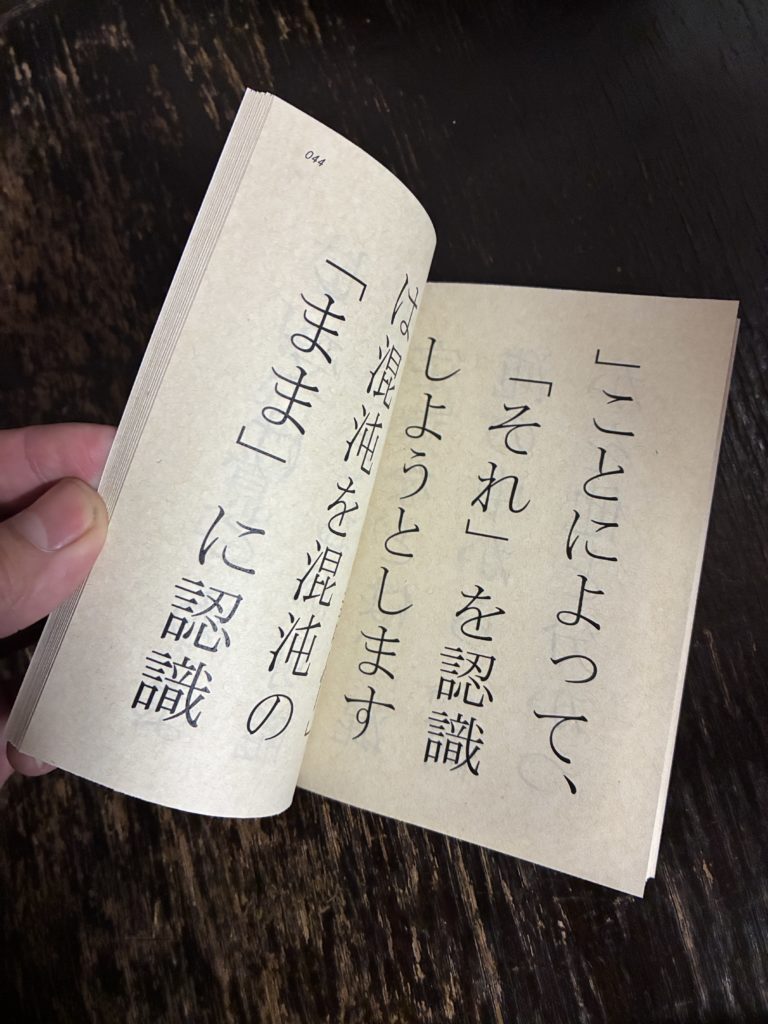 」ことによって、
「それ」を認識
しようとします
044
は混沌を混沌の
「まま」に認識